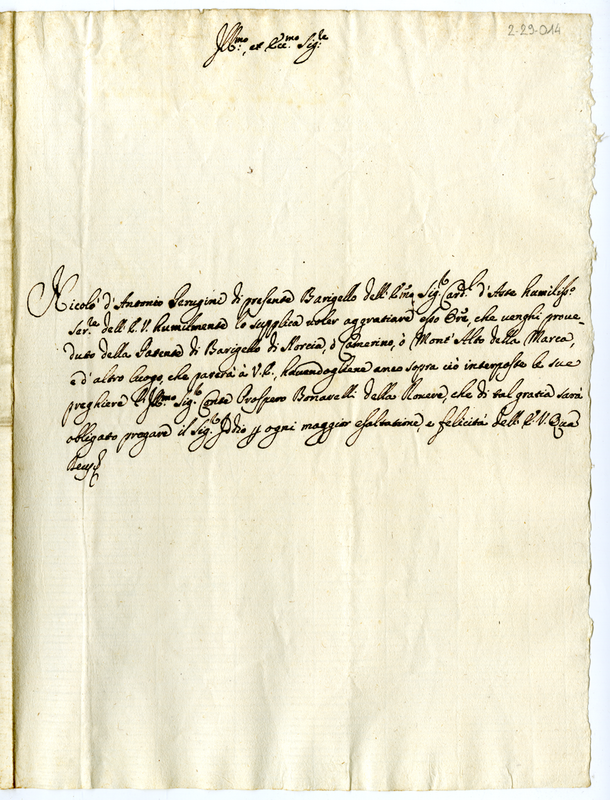 2-29-014
Ill:mo, et Ecc:mo Sig:re
Nicolò d'Antonio Perugini di presente Barigello dell'E:mo Sig:r Card:l d'Aste humiliss:o
Ser:re dell'E.V. humilmente lo supplica voler aggratiare esso Ore, che venghi prove-
duto della Patente di Barigello di Norcia, ò Camerino, ò Mont'Alto della Marca,
ò d'altro luogo, che parerà à V.E., havendogliene anco sopra ciò interposte le sue
preghiere l'Ill:mo Sig:r Conte Prospero Bonarelli della Rovere, che di tal gratia sarà
obligato pregare il Sig:r Iddio p ogni maggior esaltatione, e felicità dell'E.V. Qua
Deus